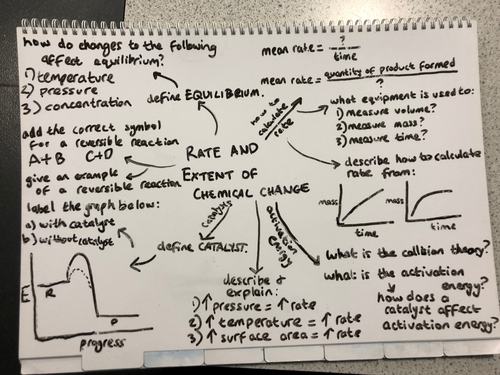 how do changes to the following
affect equilibrium?
1) temperature
2) pressure
3) concentration
define EQUILIBRIUM.
add the correct symbol
for a reversible reaction
A+B C+D
give an example
of a reversible reaction
label the graph below:
a) with catalyst
b) without catalyst
define CATALYST.
E
R
P
progress
RATE AND
EXTENT OF
CHEMICAL CHANGE
how to
calculate
rate
catalysts
activation
energy
mean rate = ?
time
mean rate = quantity of product formed
?
what equipment is used to:
1) measure volume?
2) measure mass?
3) measure time?
describe how to calculate
rate from:
mass
time
mass
time
what is the collision theory?
what is the activation
energy?
how does a
catalyst affect
activation energy?
describe &
explain:
1) ↑ pressure = ↑ rate
2) ↑ temperature = ↑ rate
3) ↑ surface area = ↑ rate